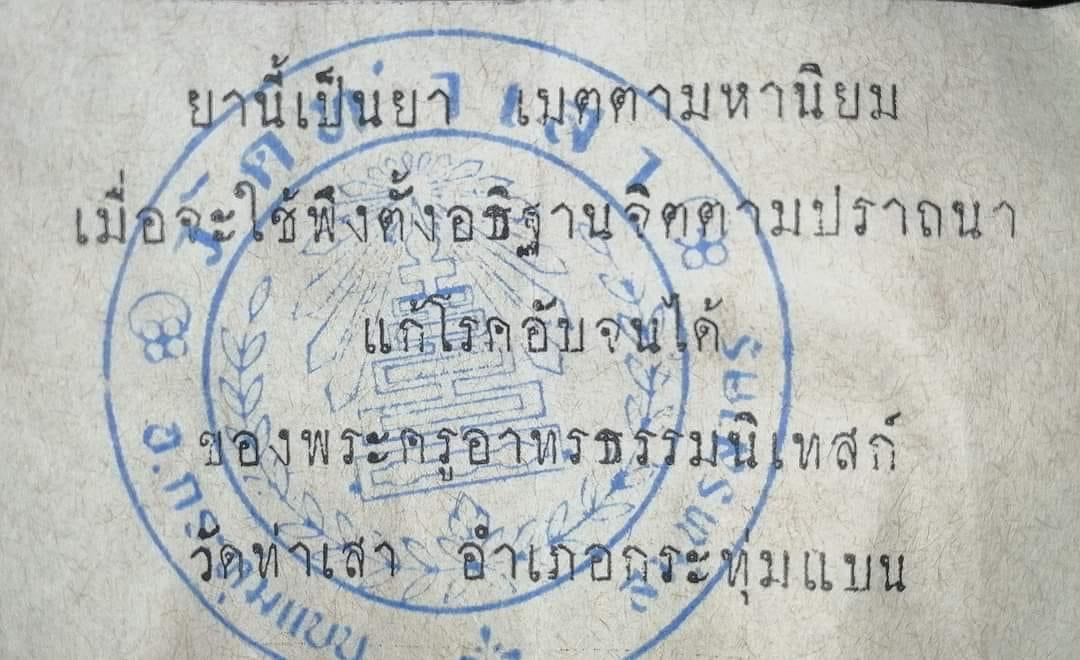 ยานี้เป็นยา เมตตามหานิยม
เมื่อจะใช้พึงตั้งอธิฐานจิตตามปราถนา
แก้โรคอับจนได้
ของพระครูอาทรธรรมนิเทสก์
วัดท่าเสา อำเภอกระทุ่มแบน
วัดท่าเสา
อ.กระทุ่มแบน
สมุทรสาคร